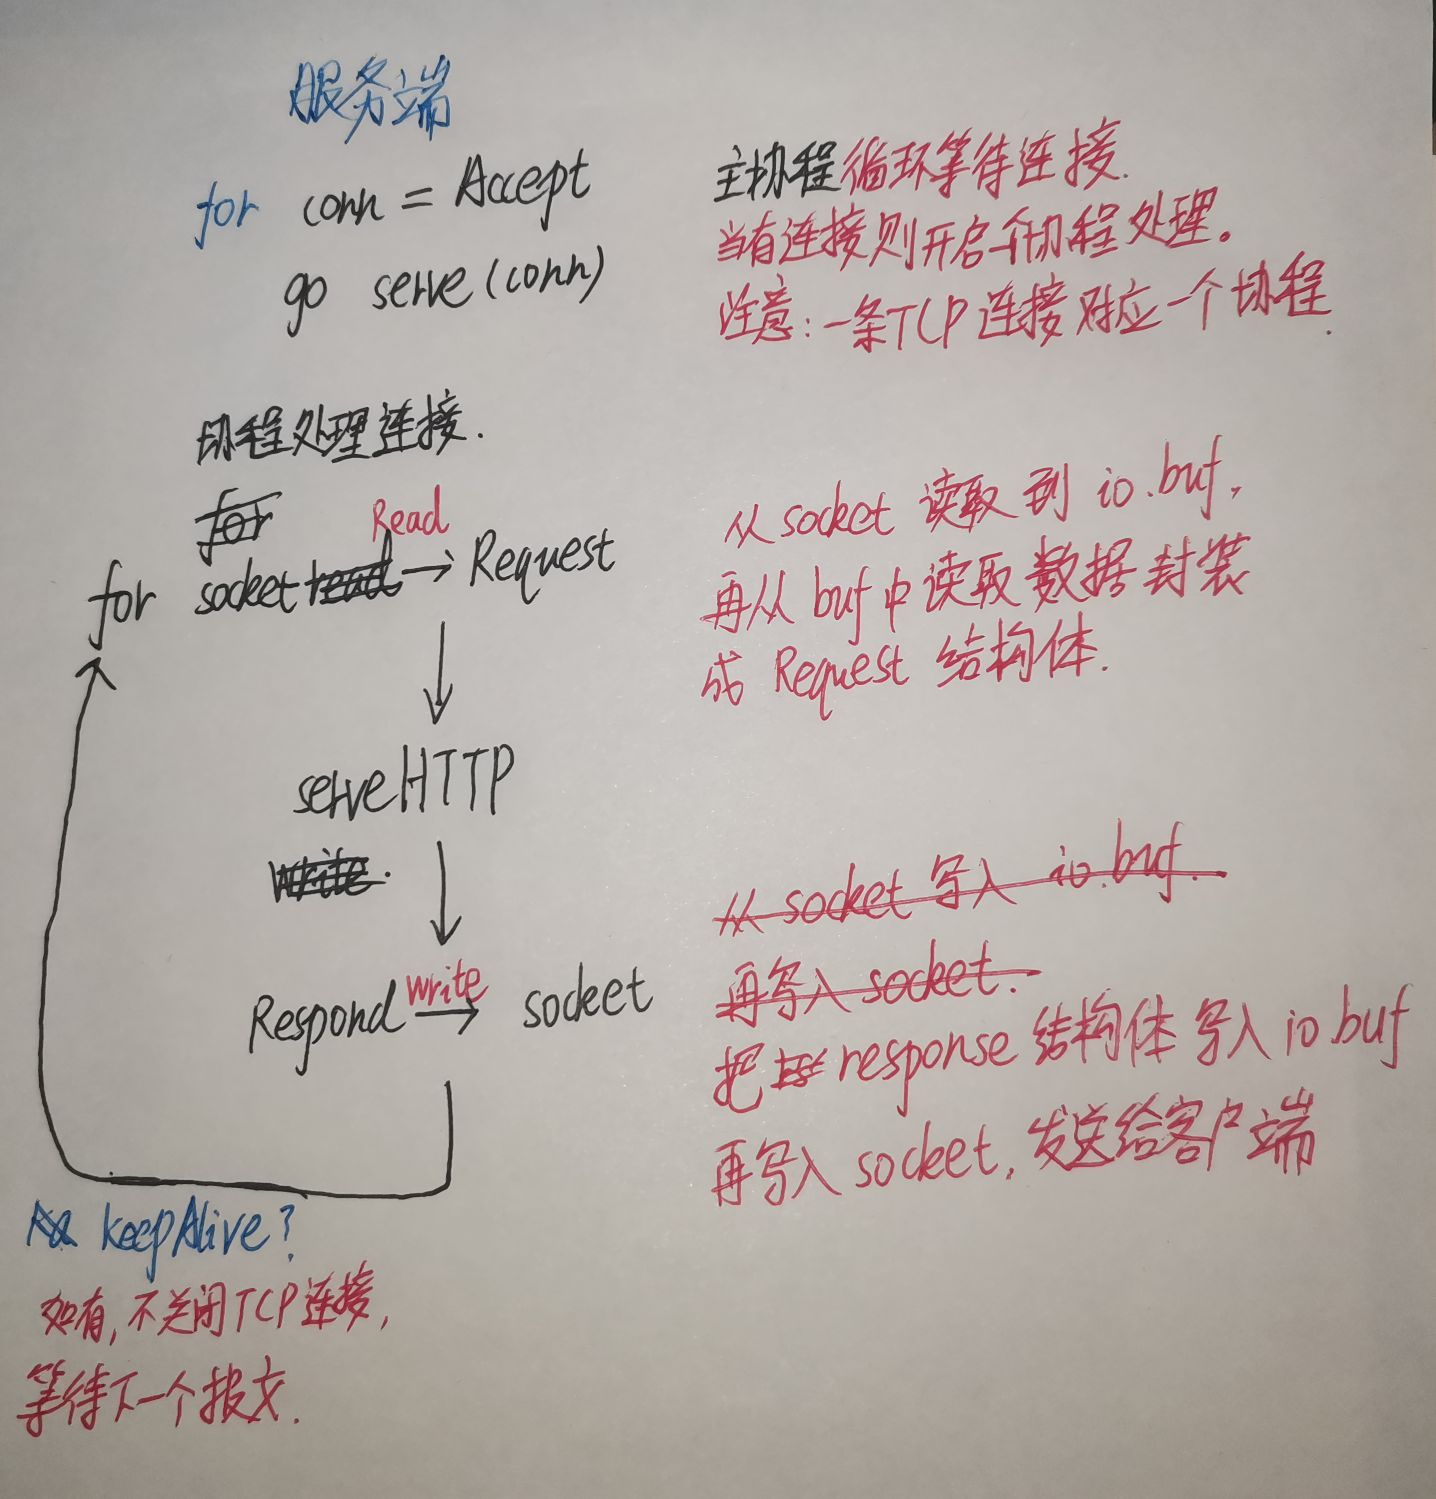 服务端
for conn = Accept
go serve(conn)
主协程循环等待连接.
当有连接则开启个协程处理。
注意:一条TCP连接对应一个协程.
协程处理连接.
for
Read
for socket read → Request
从socket 读取到 io.buf,
再从buf中读取数据封装
成 Request 结构体.
serveHTTP
write.
从 socket 写入 io.buf.
再写入 socket.
Respond write → socket
把 response 结构体写入 io buf
再写入 socket, 发送给客户端
keepAlive?
如有,不关闭TCP连接,
等待下一个报文.